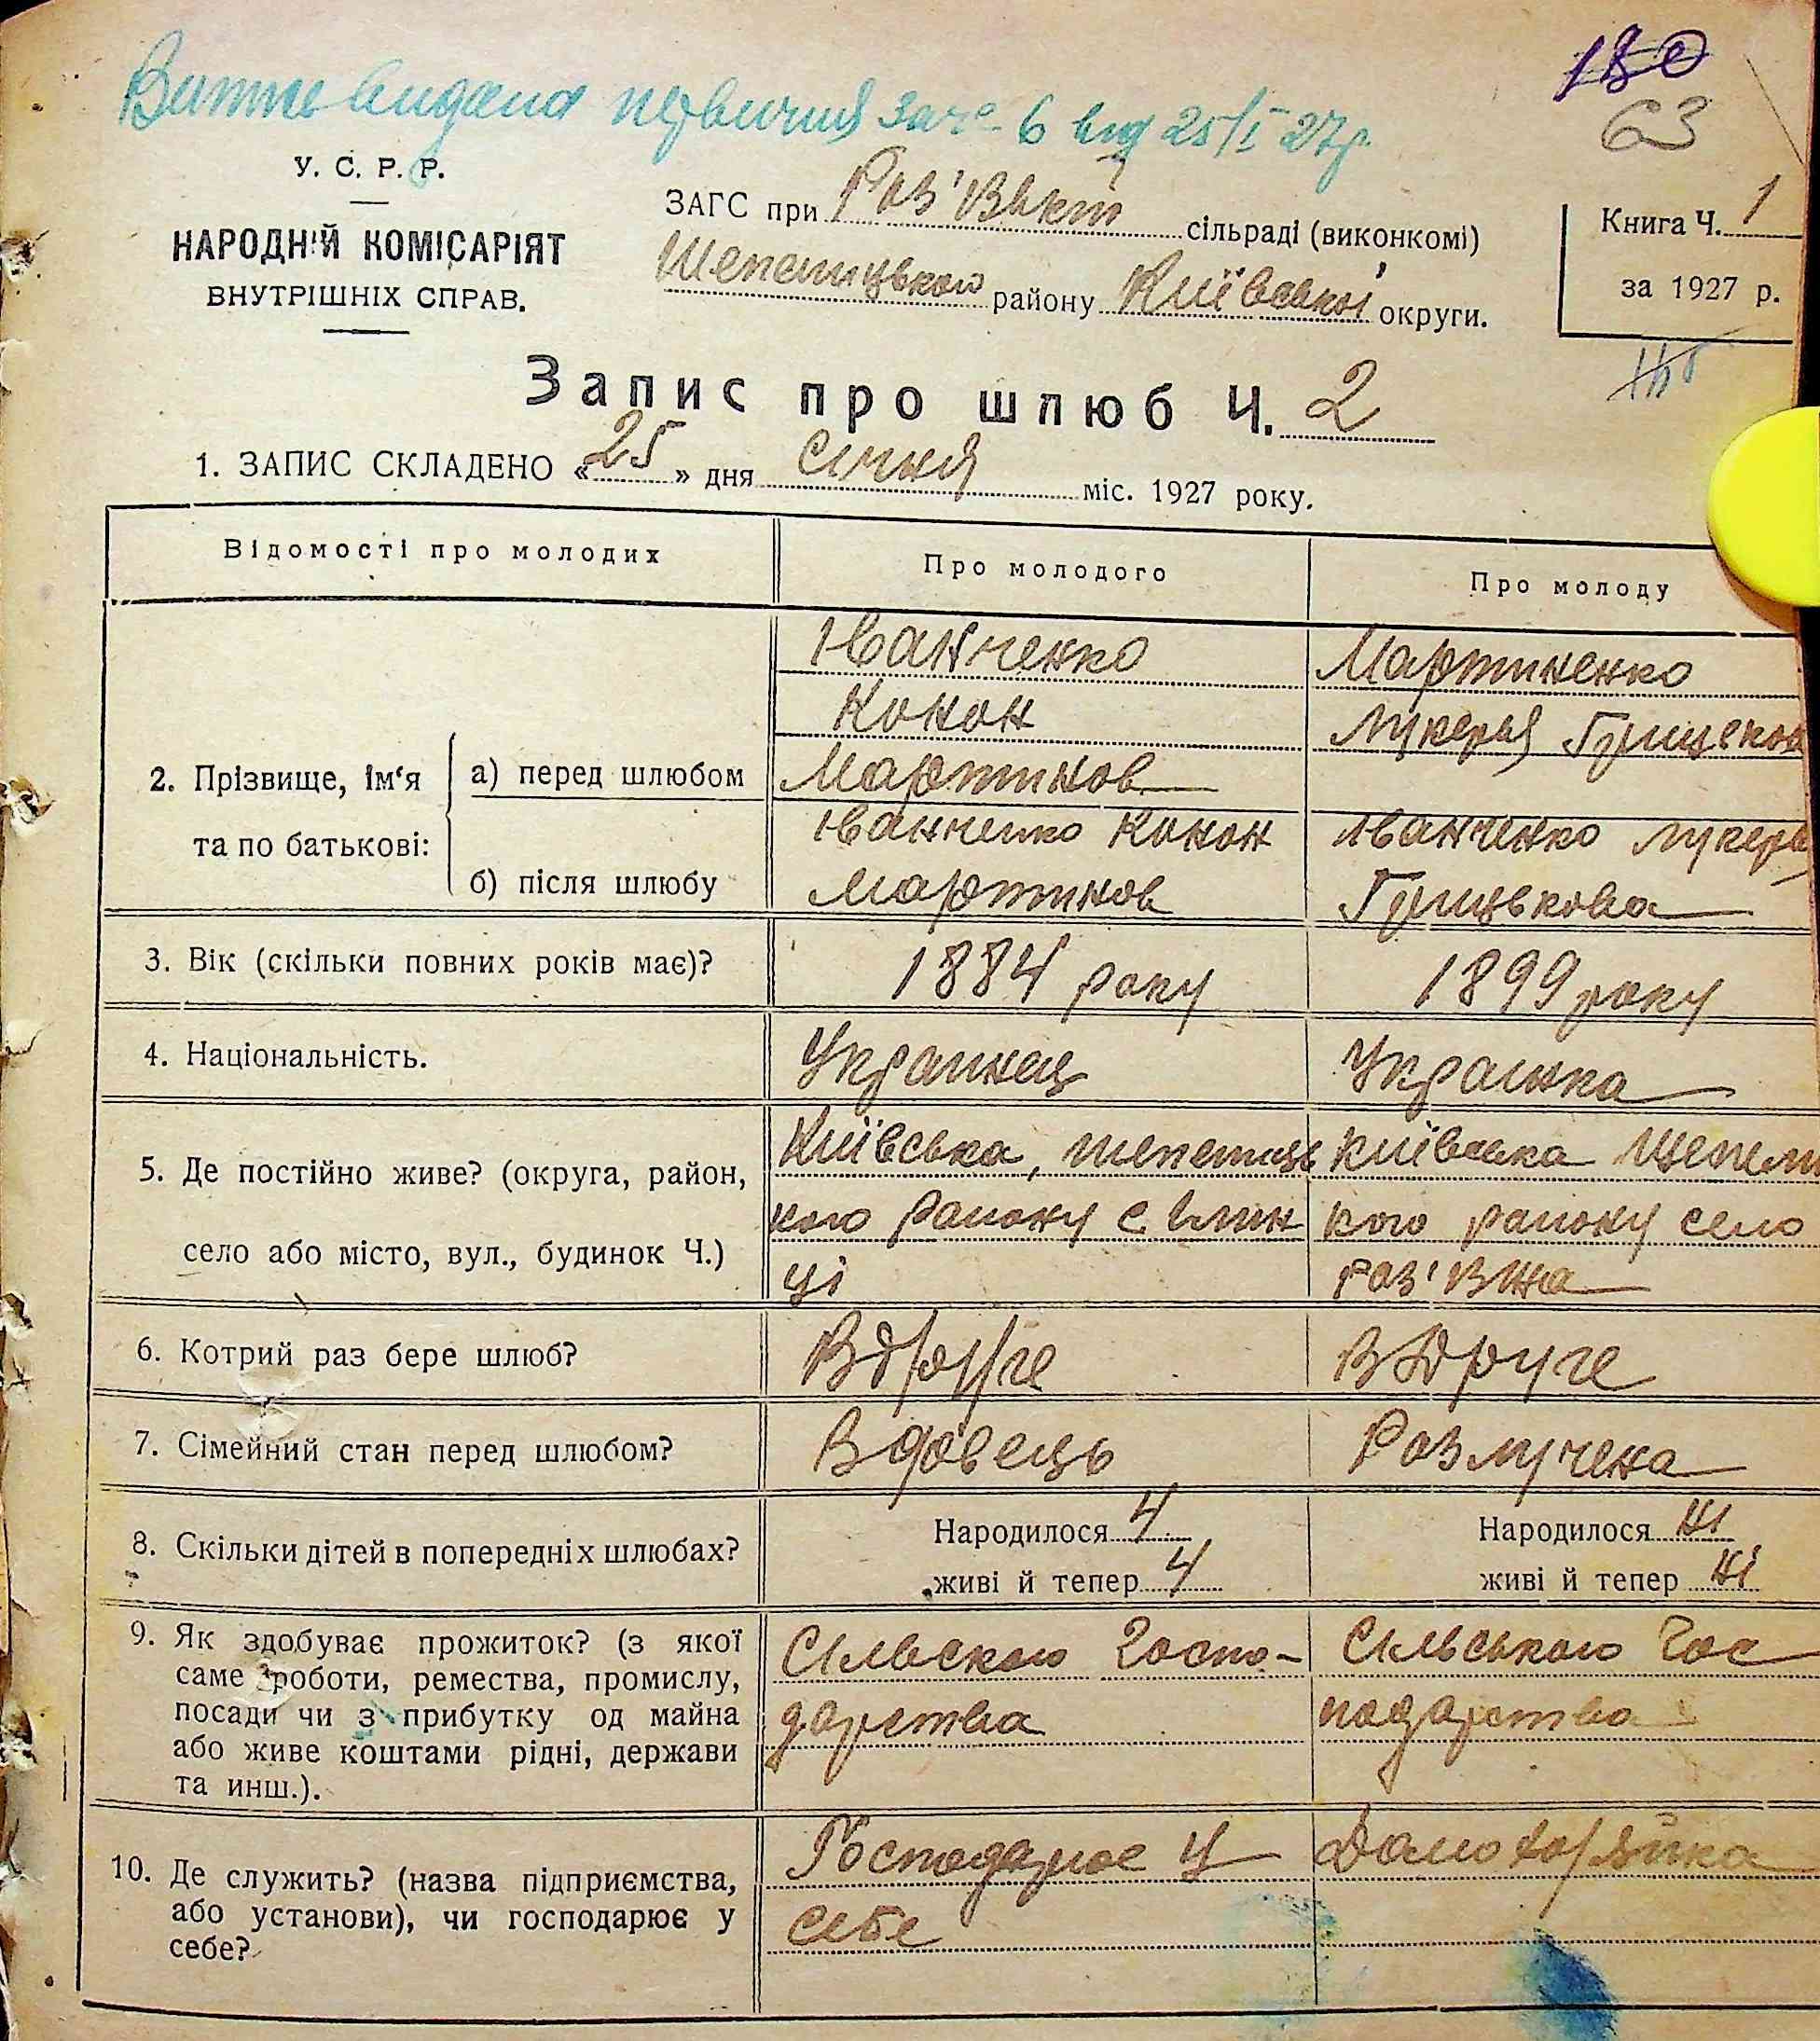 180
63
видана первичная за № 6 від 25/I 27р.
У. С. Р. Р.
НАРОДНІЙ КОМІСАРІЯТ
ВНУТРІШНІХ СПРАВ.
ЗАГС при Роз'важ сільраді (виконкомі)
Шепелицького району Київської округи.
Книга Ч. 1
за 1927 р.
Запис про шлюб Ч. 2
1. ЗАПИС СКЛАДЕНО «25» дня січня міс. 1927 року.
Відомості про молодих
Про молодого
Про молоду
2. Прізвище, ім‘я та по батькові:
а) перед шлюбом
Іванченко
Конон
Мартинов
Мартиненко
Лукерья Грицьков
б) після шлюбу
Іванченко Конон
Мартинов
Іванченко Лукерья
Грицькова
3. Вік (скільки повних років має)?
1884 року
1899 року
4. Національність.
Украинец
Украинка
5. Де постійно живе? (округа, район,
село або місто, вул., будинок Ч.)
Київська, шепелиць
кого району с Ілин
ці
Київська Шепели
кого району село
Роз'вжа
6. Котрий раз бере шлюб?
Вдруге
Вдруге
7. Сімейний стан перед шлюбом?
Вдовець
Розлучена
8. Скільки дітей в попередніх шлюбах?
Народилося 4
живі й тепер 4
Народилося ні
живі й тепер ні
9. Як здобуває прожиток? (з якої
саме роботи, ремества, промислу,
посади чи з прибутку од майна
або живе коштами рідні, держави
та инш.).
Сільского госпо-
дарства
Сільського гос
подарства
10. Де служить? (назва підприємства,
або установи), чи господарює у
себе?
Господарює у
себе
Домохозяйка